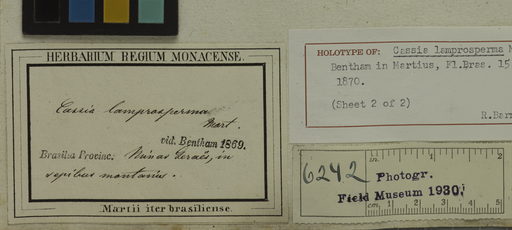 HERBARIUM REGIUM MONACENSE.
Cassia lamprosperma
Mart.
vid. Bentham 1869.
Brasilia Provinc. Minas Geraës, in
sepibus montanis.
Martii iter brasiliense.
HOLOTYPE OF: Cassia lamprosperma M
Bentham in Martius, Fl.Bras. 15
1870.
(Sheet 2 of 2)
R.Barn
in. 1
6242 Photogr.
Field Museum 1930;
cm 1 2 3 4 5